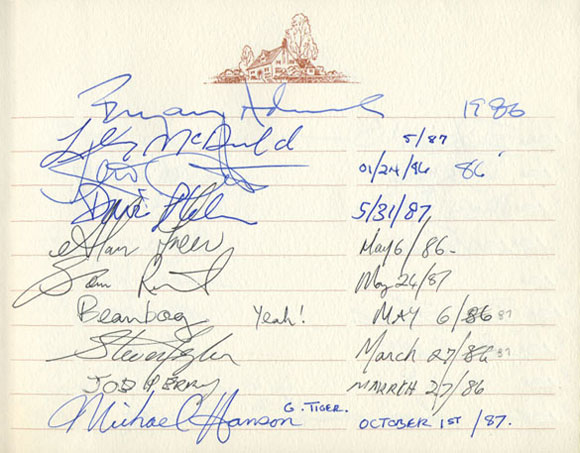 Bryan Adams 1986
McDonald 5/87
01/24/86 86
5/31/87
Alan Frew May 6/86-
Sam Reid May 24/87
Beanbog Yeah! MAY 6/86 87
Steven Tyler March 27/86 87
JOE PERRY MARRCH 27/86
Michael Hanson G. TIGER. OCTOBER 1ST /87.